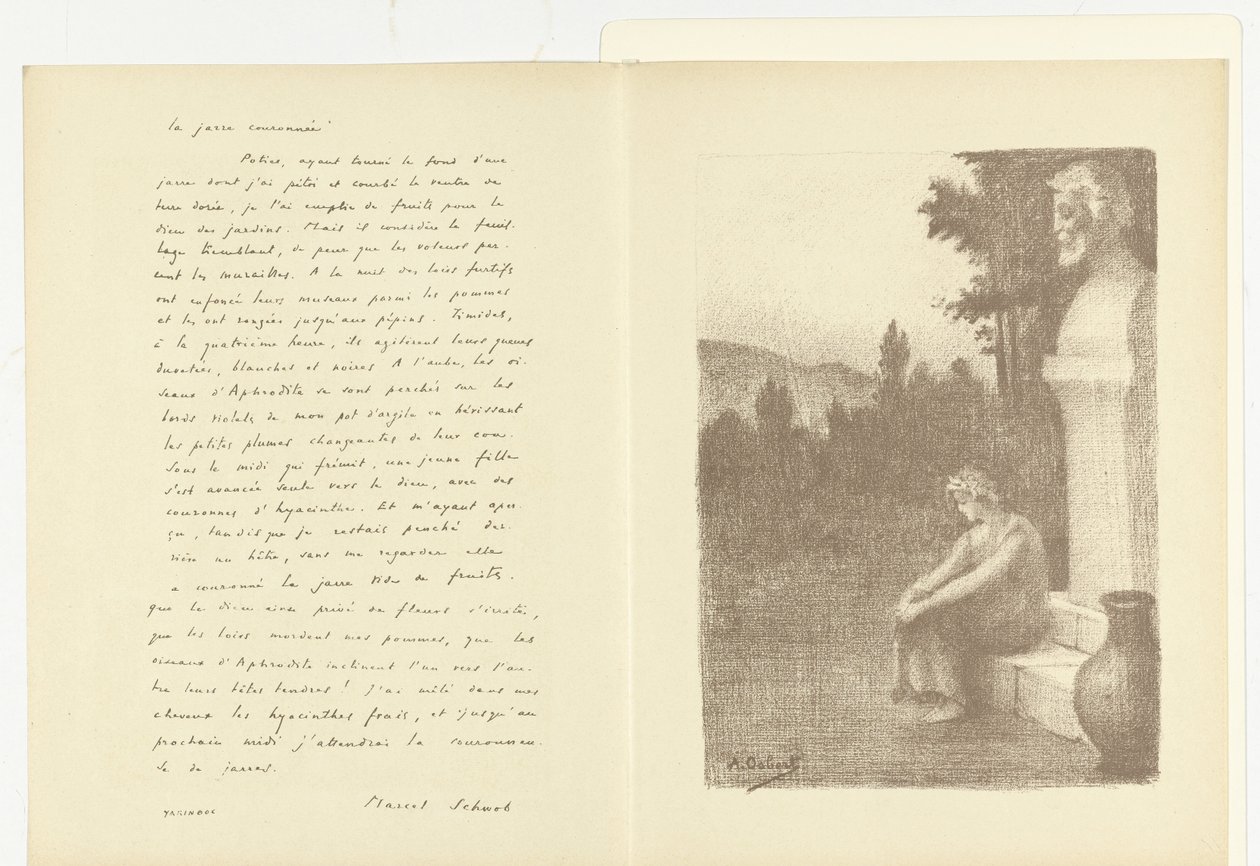 la jarre couronnée
Potier, ayant tourné le fond d'une
jarre dont j'ai pétri et courbé le ventre de
terre dorée, je l'ai emplie de fruits pour le
dieu des jardins. Mais il considère le feuil-
lage tremblant, de peur que les voleurs per-
cent les murailles. A la nuit des loirs furtifs
ont enfoncé leurs museaux parmi les pommes
et les ont rongées jusqu'aux pépins. Timides,
à la quatrième heure, ils agitèrent leurs queues
duvetées, blanches et noires A l'aube, les oi-
seaux d'Aphrodite se sont perchés sur les
bords violets de mon pot d'argile en hérissant
les petites plumes changeantes de leur cou.
Sous le midi qui frémit, une jeune fille
s'est avancée seule vers le dieu, avec des
couronnes d'hyacinthe. Et m'ayant aper-
çu, tandis que je restais penché der-
rière un hêtre, sans me regarder elle
a couronné la jarre vide de fruits.
que le dieu ainsi privé de fleurs s'irrite,
que les loirs mordent mes pommes, que les
oiseaux d'Aphrodite inclinent l'un vers l'au-
tre leurs têtes tendres! J'ai mêlé dans mes
cheveux les hyacinthes frais, et jusqu'au
prochain midi j'attendrai la couronneu-
se de jarres.
Marcel Schwob
A. Osbert